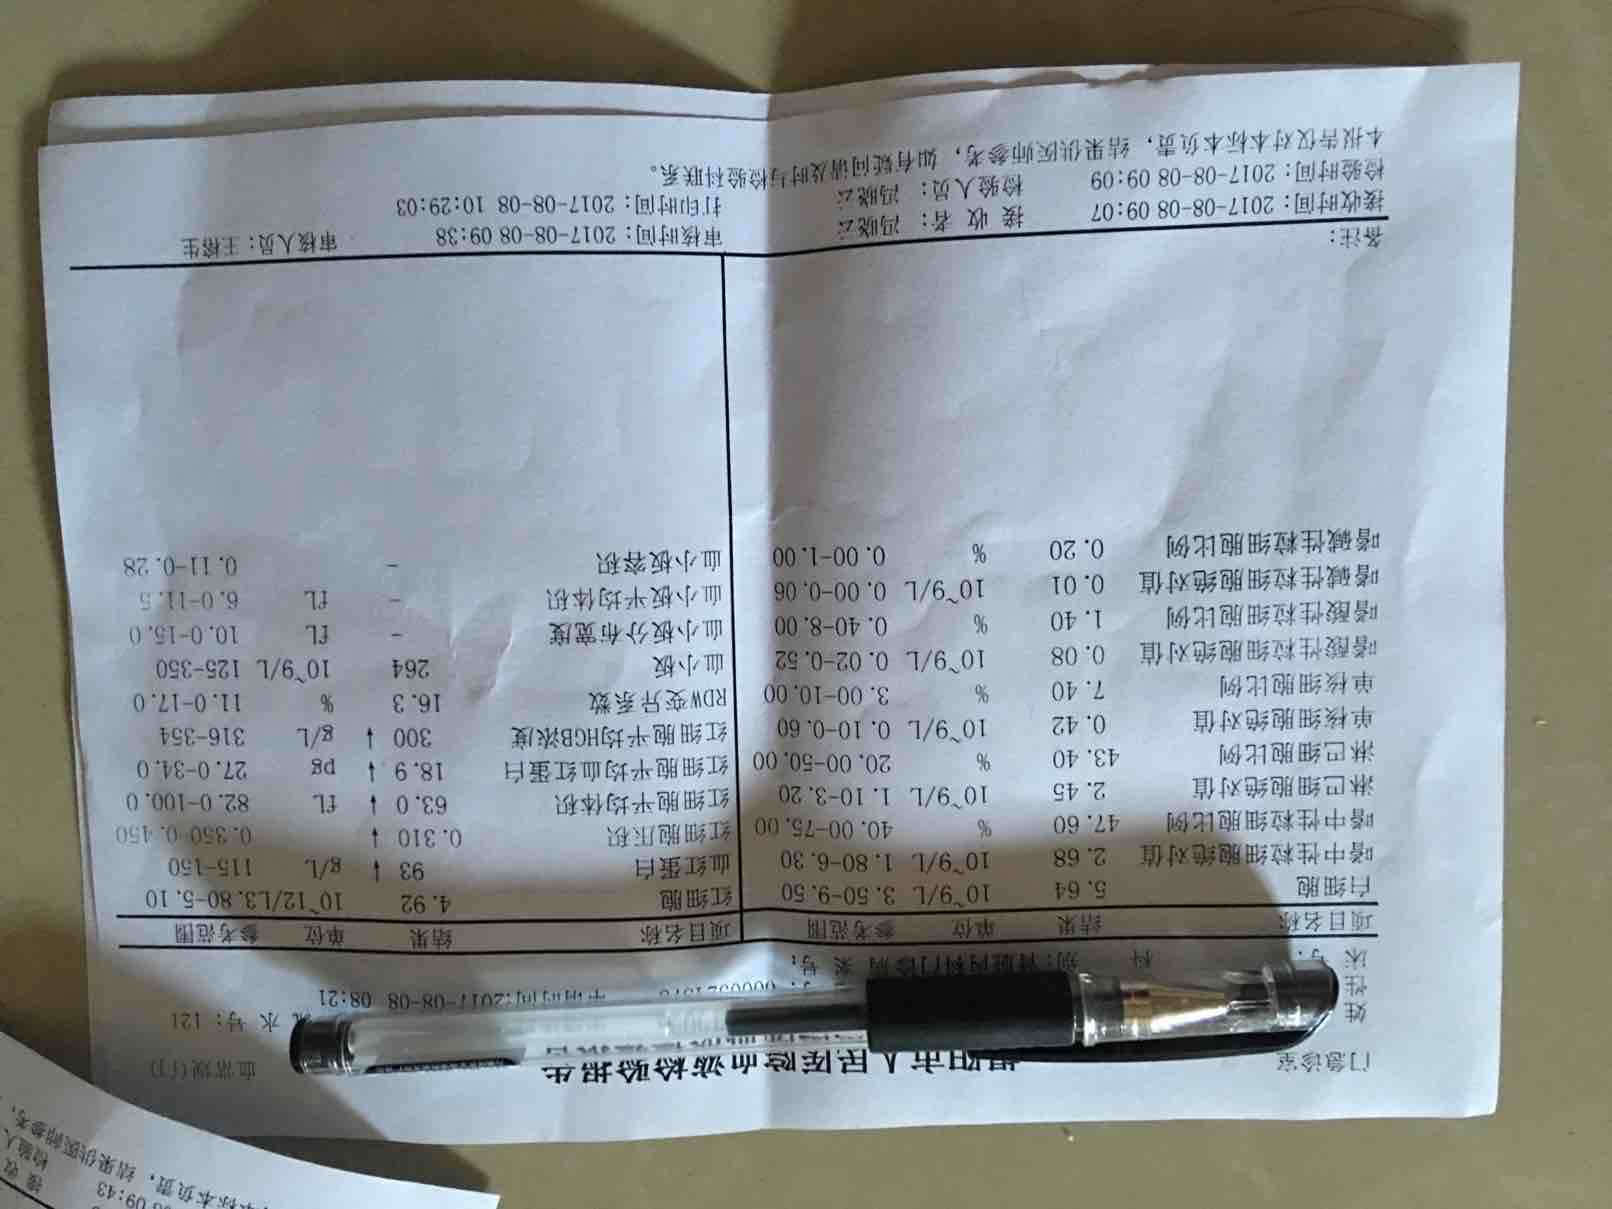 门急诊室 揭阳市人民医院血液检验报告 血常规(门)
姓 水号：121
性 申请时间:2017-08-08 08:21
床 号： 科 别：肾脏内科门诊 病 案 号：
项目名称 结果 单位 参考范围 项目名称 结果 单位 参考范围
白细胞 5.64 10^9/L 3.50-9.50 红细胞 4.92 10^12/L 3.80-5.10
嗜中性粒细胞绝对值 2.68 10^9/L 1.80-6.30 血红蛋白 93 ↓ g/L 115-150
嗜中性粒细胞比例 47.60 % 40.00-75.00 红细胞压积 0.310 ↓ 0.350-0.450
淋巴细胞绝对值 2.45 10^9/L 1.10-3.20 红细胞平均体积 63.0 ↓ fL 82.0-100.0
淋巴细胞比例 43.40 % 20.00-50.00 红细胞平均血红蛋白 18.9 ↓ pg 27.0-34.0
单核细胞绝对值 0.42 10^9/L 0.10-0.60 红细胞平均HGB浓度 300 ↓ g/L 316-354
单核细胞比例 7.40 % 3.00-10.00 RDW变异系数 16.3 % 11.0-17.0
嗜酸性粒细胞绝对值 0.08 10^9/L 0.02-0.52 血小板 264 10^9/L 125-350
嗜酸性粒细胞比例 1.40 % 0.40-8.00 血小板分布宽度 - fL 10.0-15.0
嗜碱性粒细胞绝对值 0.01 10^9/L 0.00-0.06 血小板平均体积 - fL 6.0-11.5
嗜碱性粒细胞比例 0.20 % 0.00-1.00 血小板容积 - 0.11-0.28
备注：
接收时间：2017-08-08 09:07 接 收 者：冯晓云 审核时间：2017-08-08 09:38 审核人员：王榕生
检验时间：2017-08-08 09:09 检验人员：冯晓云 打印时间：2017-08-08 10:29:03
本报告仅对本标本负责，结果供医师参考，如有疑问请及时与检验科联系。
接 收
09:43 检验人
本标本负责，结果供医师参考，